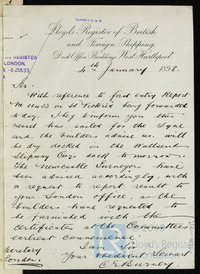 Lloyds Register of British
and Foreign Shipping,
District Office Buildings, West Hartlepool
4th January 1898.
REGISTER
LONDON.
Sir,
With reference to first entry Report
No 10033 on SS "Fedrice" being forwarded
to day. I beg to inform you this
vessel has sailed for the Tyne
and the builders advise us, will
be dry docked in the Wallsend
Slipway Coys dock to morrow.
The Newcastle Surveyors have
been advised accordingly, with
a request to report result to
your London office, as the
builders have requested to
be furnished with the
certificates at the Committee's
earliest convenience.
I am, Sir,
Your obedient Servant
Secretary
London.
Lloyd's Register